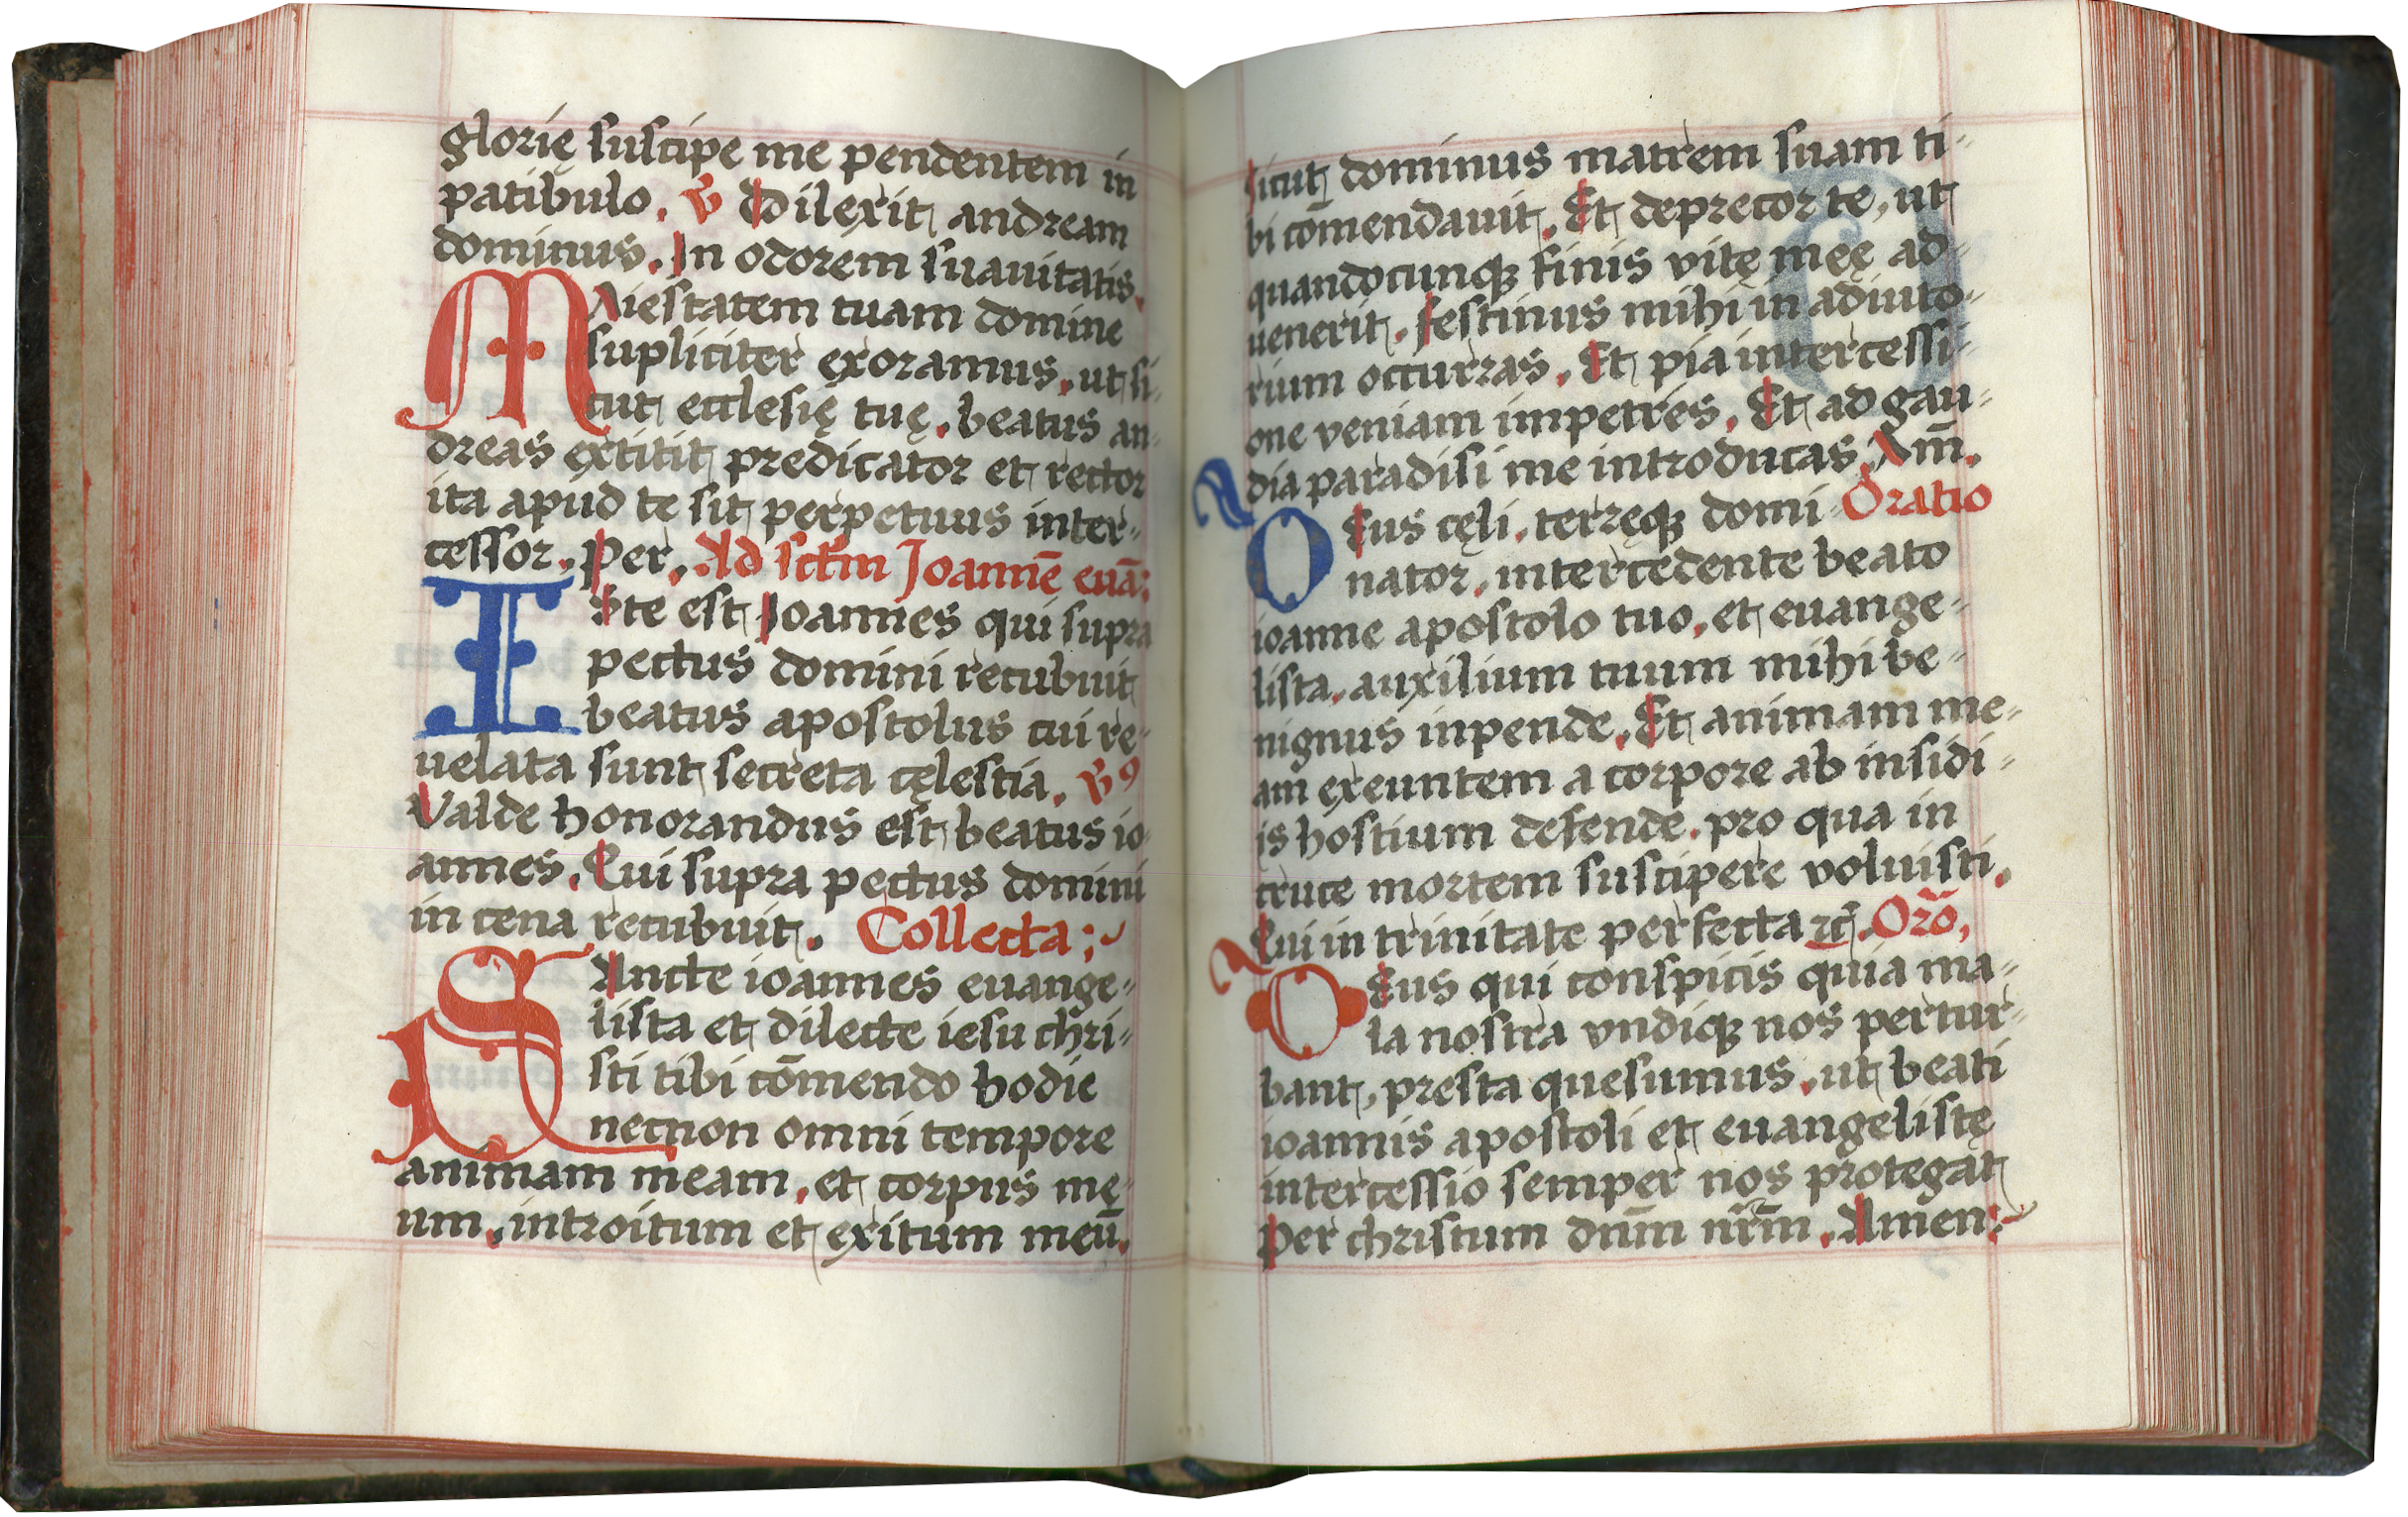 glorię suscipe me pendentem in
patibulo. ℣ Dilexit andream
dominus. In odorem suauitatis.
MAiestatem tuam domine
supliciter exoramus, ut si-
cut ecclesię tuę, beatus an-
dreas extitit predicator et rector
ita apud te sit perpetuus inter-
cessor. Per. Ad sctm Joannē euā:
ISte est Joannes qui supra
pectus domini recubuit
beatus apostolus cui re-
uelata sunt secreta cęlestia. ℣9
Valde honorandus est beatus io-
annes. Qui supra pectus domini
in cena recubuit. Collecta;
SAncte ioannes euange-
lista et dilecte iesu chri-
sti tibi cōmendo hodie
necnon omni tempore
animam meam, et corpus mę-
um, introitum et exitum meū.
sicut dominus matrem suam ti-
bi cōmendauit. Et deprecor te, ut
quandocunqꝫ finis vitę męę ad-
uenerit. festinus mihi in adiuto-
rium occurras. Et pia intercessi-
one veniam impetres. Et ad gau-
dia paradisi me introducas. Am̄.
DEus cęli, terręqꝫ domi- Oratio
nator, intercedente beato
ioanne apostolo tuo, et euange-
lista, auxilium tuum mihi be-
nignus inpende. Et animam me-
am exeuntem a corpore ab insidi-
is hostium defende. pro qua in
cruce mortem suscipere voluisti.
Qui in trinitate perfecta ⁊c̄. Orō,
DEus qui conspicis quia ma-
la nostra vndiqꝫ nos pertur-
bant, presta quesumus, ut beati
ioannis apostoli et euangelistę
intercessio semper nos protegat
Per christum dnm̄ nr̄m. Amen: